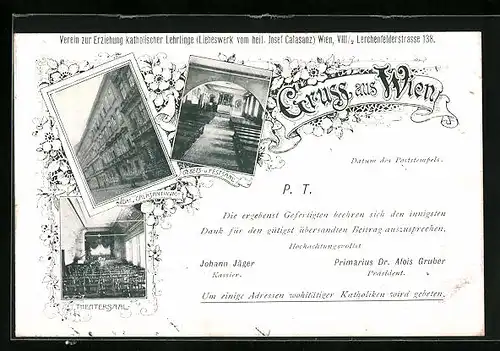 Verein zur Erziehung katholischer Lehrlinge (Liebeswerk vom heil. Josef Calasanz) Wien, VIII/2 Lerchenfelderstrasse 138.
Gruss aus Wien!
Datum des Poststempels.
P. T.
Die ergebenst Gefertigten beehren sich den innigsten
Dank für den gütigst übersandten Beitrag auszusprechen.
Hochachtungsvollst
Johann Jäger
Kassier.
Primarius Dr. Alois Gruber
Präsident.
Um einige Adressen wohltätiger Katholiken wird gebeten.
U. FESTSAAL
CALASANTINUM
THEATERSAAL